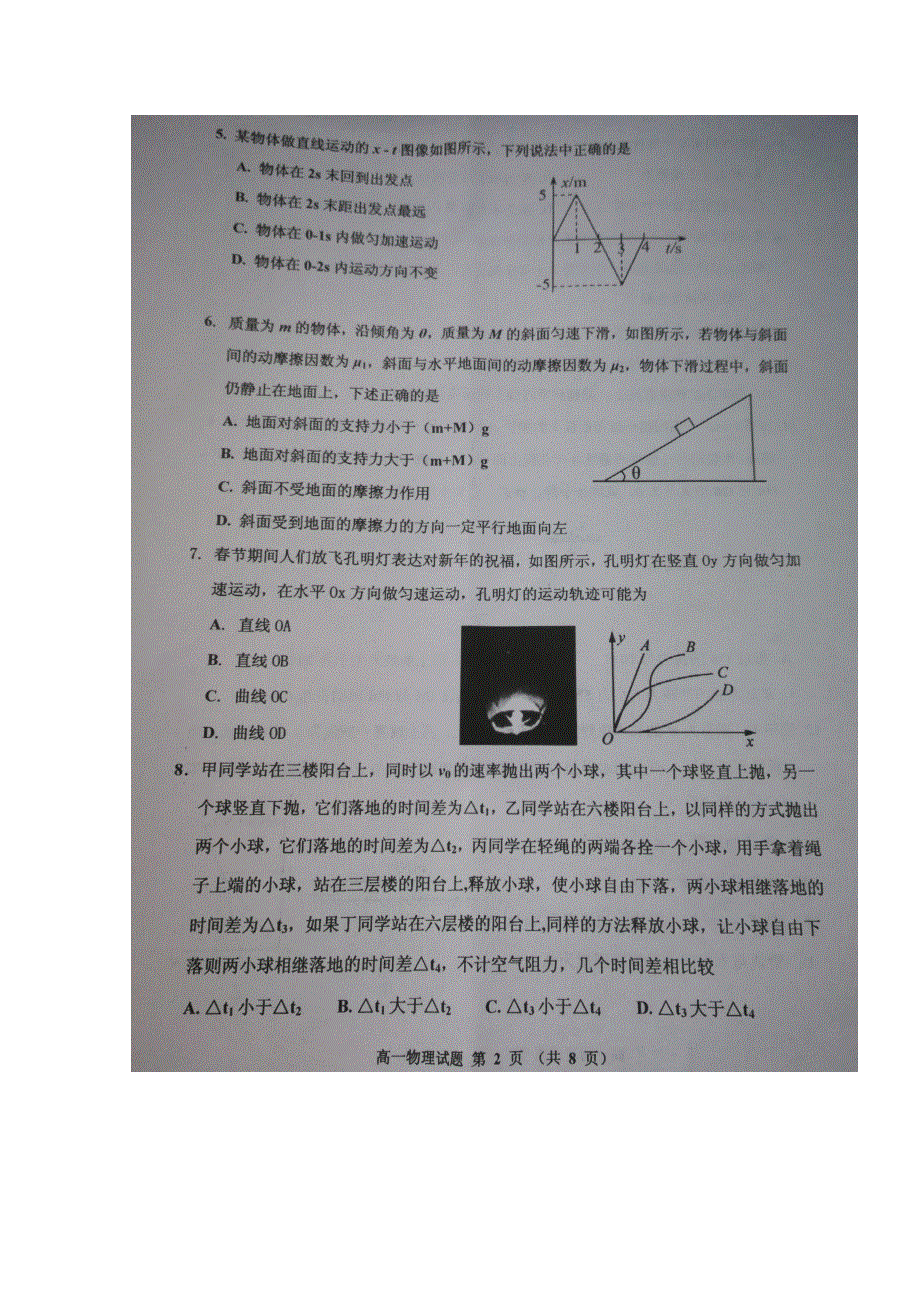 5. 某物体做直线运动的 x - t 图像如图所示，下列说法中正确的是
A. 物体在 2s 末回到出发点
B. 物体在 2s 末距出发点最远
C. 物体在 0-1s 内做匀加速运动
D. 物体在 0-2s 内运动方向不变
x/m
5
1 2 3 4 t/s
-5
6. 质量为 m 的物体，沿倾角为 θ，质量为 M 的斜面匀速下滑，如图所示，若物体与斜面
间的动摩擦因数为 μ₁，斜面与水平地面间的动摩擦因数为 μ₂，物体下滑过程中，斜面
仍静止在地面上，下述正确的是
A. 地面对斜面的支持力小于（m+M）g
B. 地面对斜面的支持力大于（m+M）g
C. 斜面不受地面的摩擦力作用
D. 斜面受到地面的摩擦力的方向一定平行地面向左
θ
7. 春节期间人们放飞孔明灯表达对新年的祝福，如图所示，孔明灯在竖直 Oy 方向做匀加
速运动，在水平 Ox 方向做匀速运动，孔明灯的运动轨迹可能为
A. 直线 OA
B. 直线 OB
C. 曲线 OC
D. 曲线 OD
y
A
B
C
D
O
x
8. 甲同学站在三楼阳台上，同时以 v₀的速率抛出两个小球，其中一个球竖直上抛，另一
个球竖直下抛，它们落地的时间差为△t₁，乙同学站在六楼阳台上，以同样的方式抛出
两个小球，它们落地的时间差为△t₂，丙同学在轻绳的两端各拴一个小球，用手拿着绳
子上端的小球，站在三层楼的阳台上,释放小球，使小球自由下落，两小球相继落地的
时间差为△t₃，如果丁同学站在六层楼的阳台上,同样的方法释放小球，让小球自由下
落则两小球相继落地的时间差△t₄，不计空气阻力，几个时间差相比较
A. △t₁ 小于△t₂ B. △t₁ 大于△t₂ C. △t₃ 小于△t₄ D. △t₃ 大于△t₄
高一物理试题 第 2 页 （共 8 页）